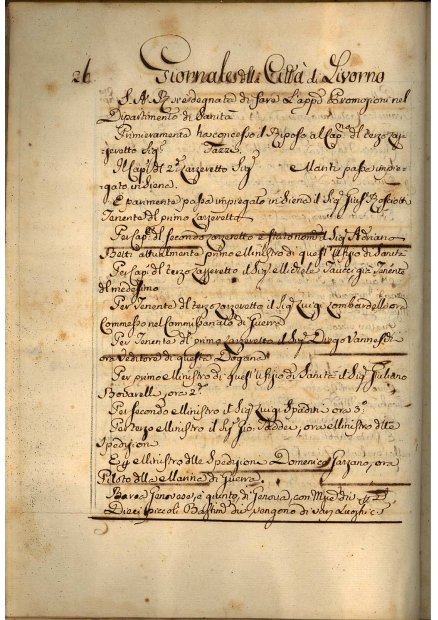 26. Giornale della Città di Livorno
S. A. R. si è degnata di fare l'app. Promozioni nel
Dipartimento di Sanità
Primieramente ha concesso il Riposo al Cap. del terzo Laz-
zeretto Sig. Tazzi.
Il Cap. del 2. Lazzeretto Sig. Manti passa impie-
gato in Siena.
E parimente passa impiegato in Siena il Sig. Tenente del primo Lazzeretto
Per Cap. del secondo Lazzeretto è stato nom. il Sig. Adriano
Betti attualmente primo Ministro di quest'Ufizio di Sanità
Per Cap. del terzo Lazzeretto il Sig. Michele già Tenente
del medesimo
Per Tenente del terzo Lazzeretto il Sig. Luigi Lombardelli ora
Commesso nel Commissariato di Guerra
Per Tenente del primo Lazzeretto il Sig. Diego Vannessi
ora Veditore di questa Dogana
Per primo Ministro di quest'Ufizio di Sanità il Sig. Giuliano
ora 2.
Per secondo Ministro il Sig. Luigi Spadini ora 3.
Per terzo Ministro il Sig. Gio. Taddei, ora Ministro delle
Spedizioni
E per Ministro delle Spedizioni Domenico Garzano, ora
Piloto della Marina di Guerra.
Genovese, è giunto, di Genova, con
Dieci piccoli Bastim. vengono di